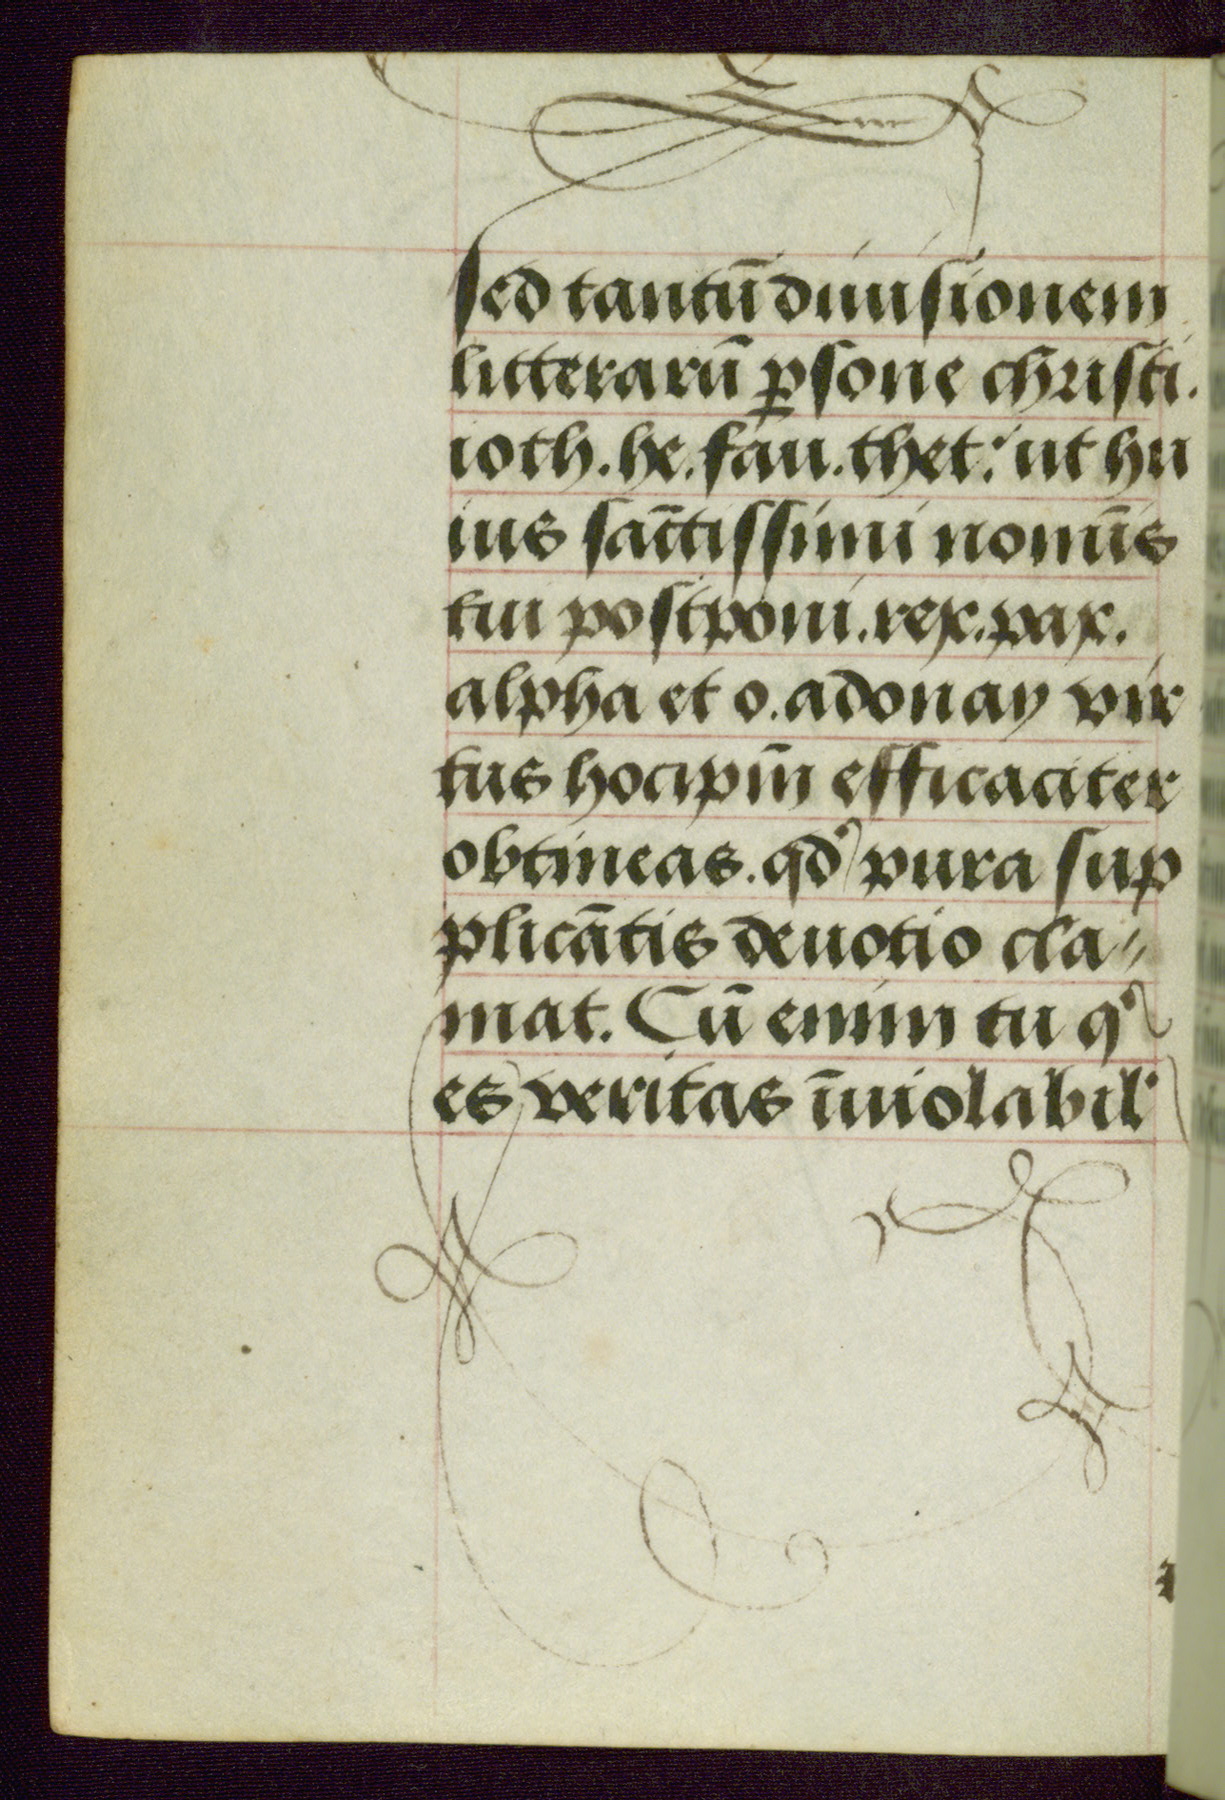 sed tantū diuisionem
litterarū ꝑsone christi.
ioth. he. fau. thet: ut hu
ius sāctissimi nomīs
tui postponi. rex. pax.
alpha et o. adonay vir
tus hoc ipm̄ efficaciter
obtineas. qd' pura sup
plicātis deuotio cla〃
mat. Cū enim tu q'
es veritas īuiolabil'